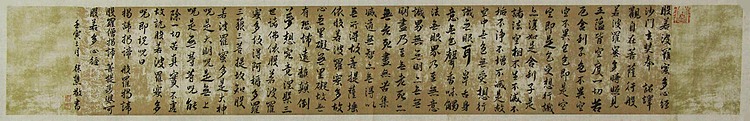 般若波羅蜜多心經
沙門玄奘奉 詔譯
觀自在菩薩行般
若波羅蜜多時照見
五蘊皆空度一切苦
厄舍利子色不異空
空不異色色即是空
空即是色受想行識
亦復如是舍利子是
諸法空相不生不滅不
垢不淨不增不減是故
空中無色無受想行
識無眼耳鼻舌身
意無色聲香味觸
法無眼界乃至無意
識界無無明亦無無
明盡乃至無老死亦
無老死盡無苦集
滅道無智亦無得以
無所得故菩提薩埵
依般若波羅蜜多故
心無罣礙無罣礙故無
有恐怖遠離顛倒
夢想究竟涅槃三
世諸佛依般若波羅
蜜多故得阿耨多羅
三藐三菩提故知般
若波羅蜜多是大神
咒是大明咒是無上
咒是無等等咒能
除一切苦真實不虛
故說般若波羅蜜多
咒即說咒曰
揭諦揭諦 般羅揭諦
般羅僧揭諦菩提薩婆訶
般若多心經
壬寅三月 敬書